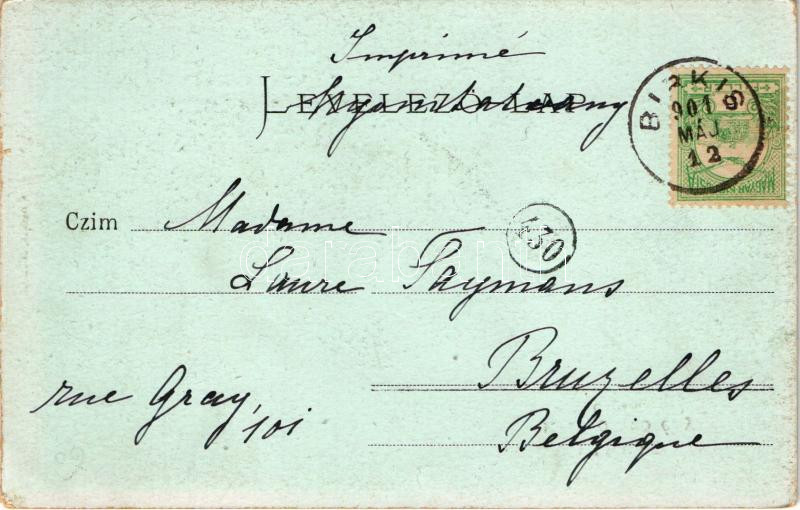 Imprimé
LEVELEZŐ-LAP
BIRKIS
901
MÁJ
12
MAGYAR
Czim Madame
430
Laure Taymans
Bruxelles
rue Gray, 101
Belgique